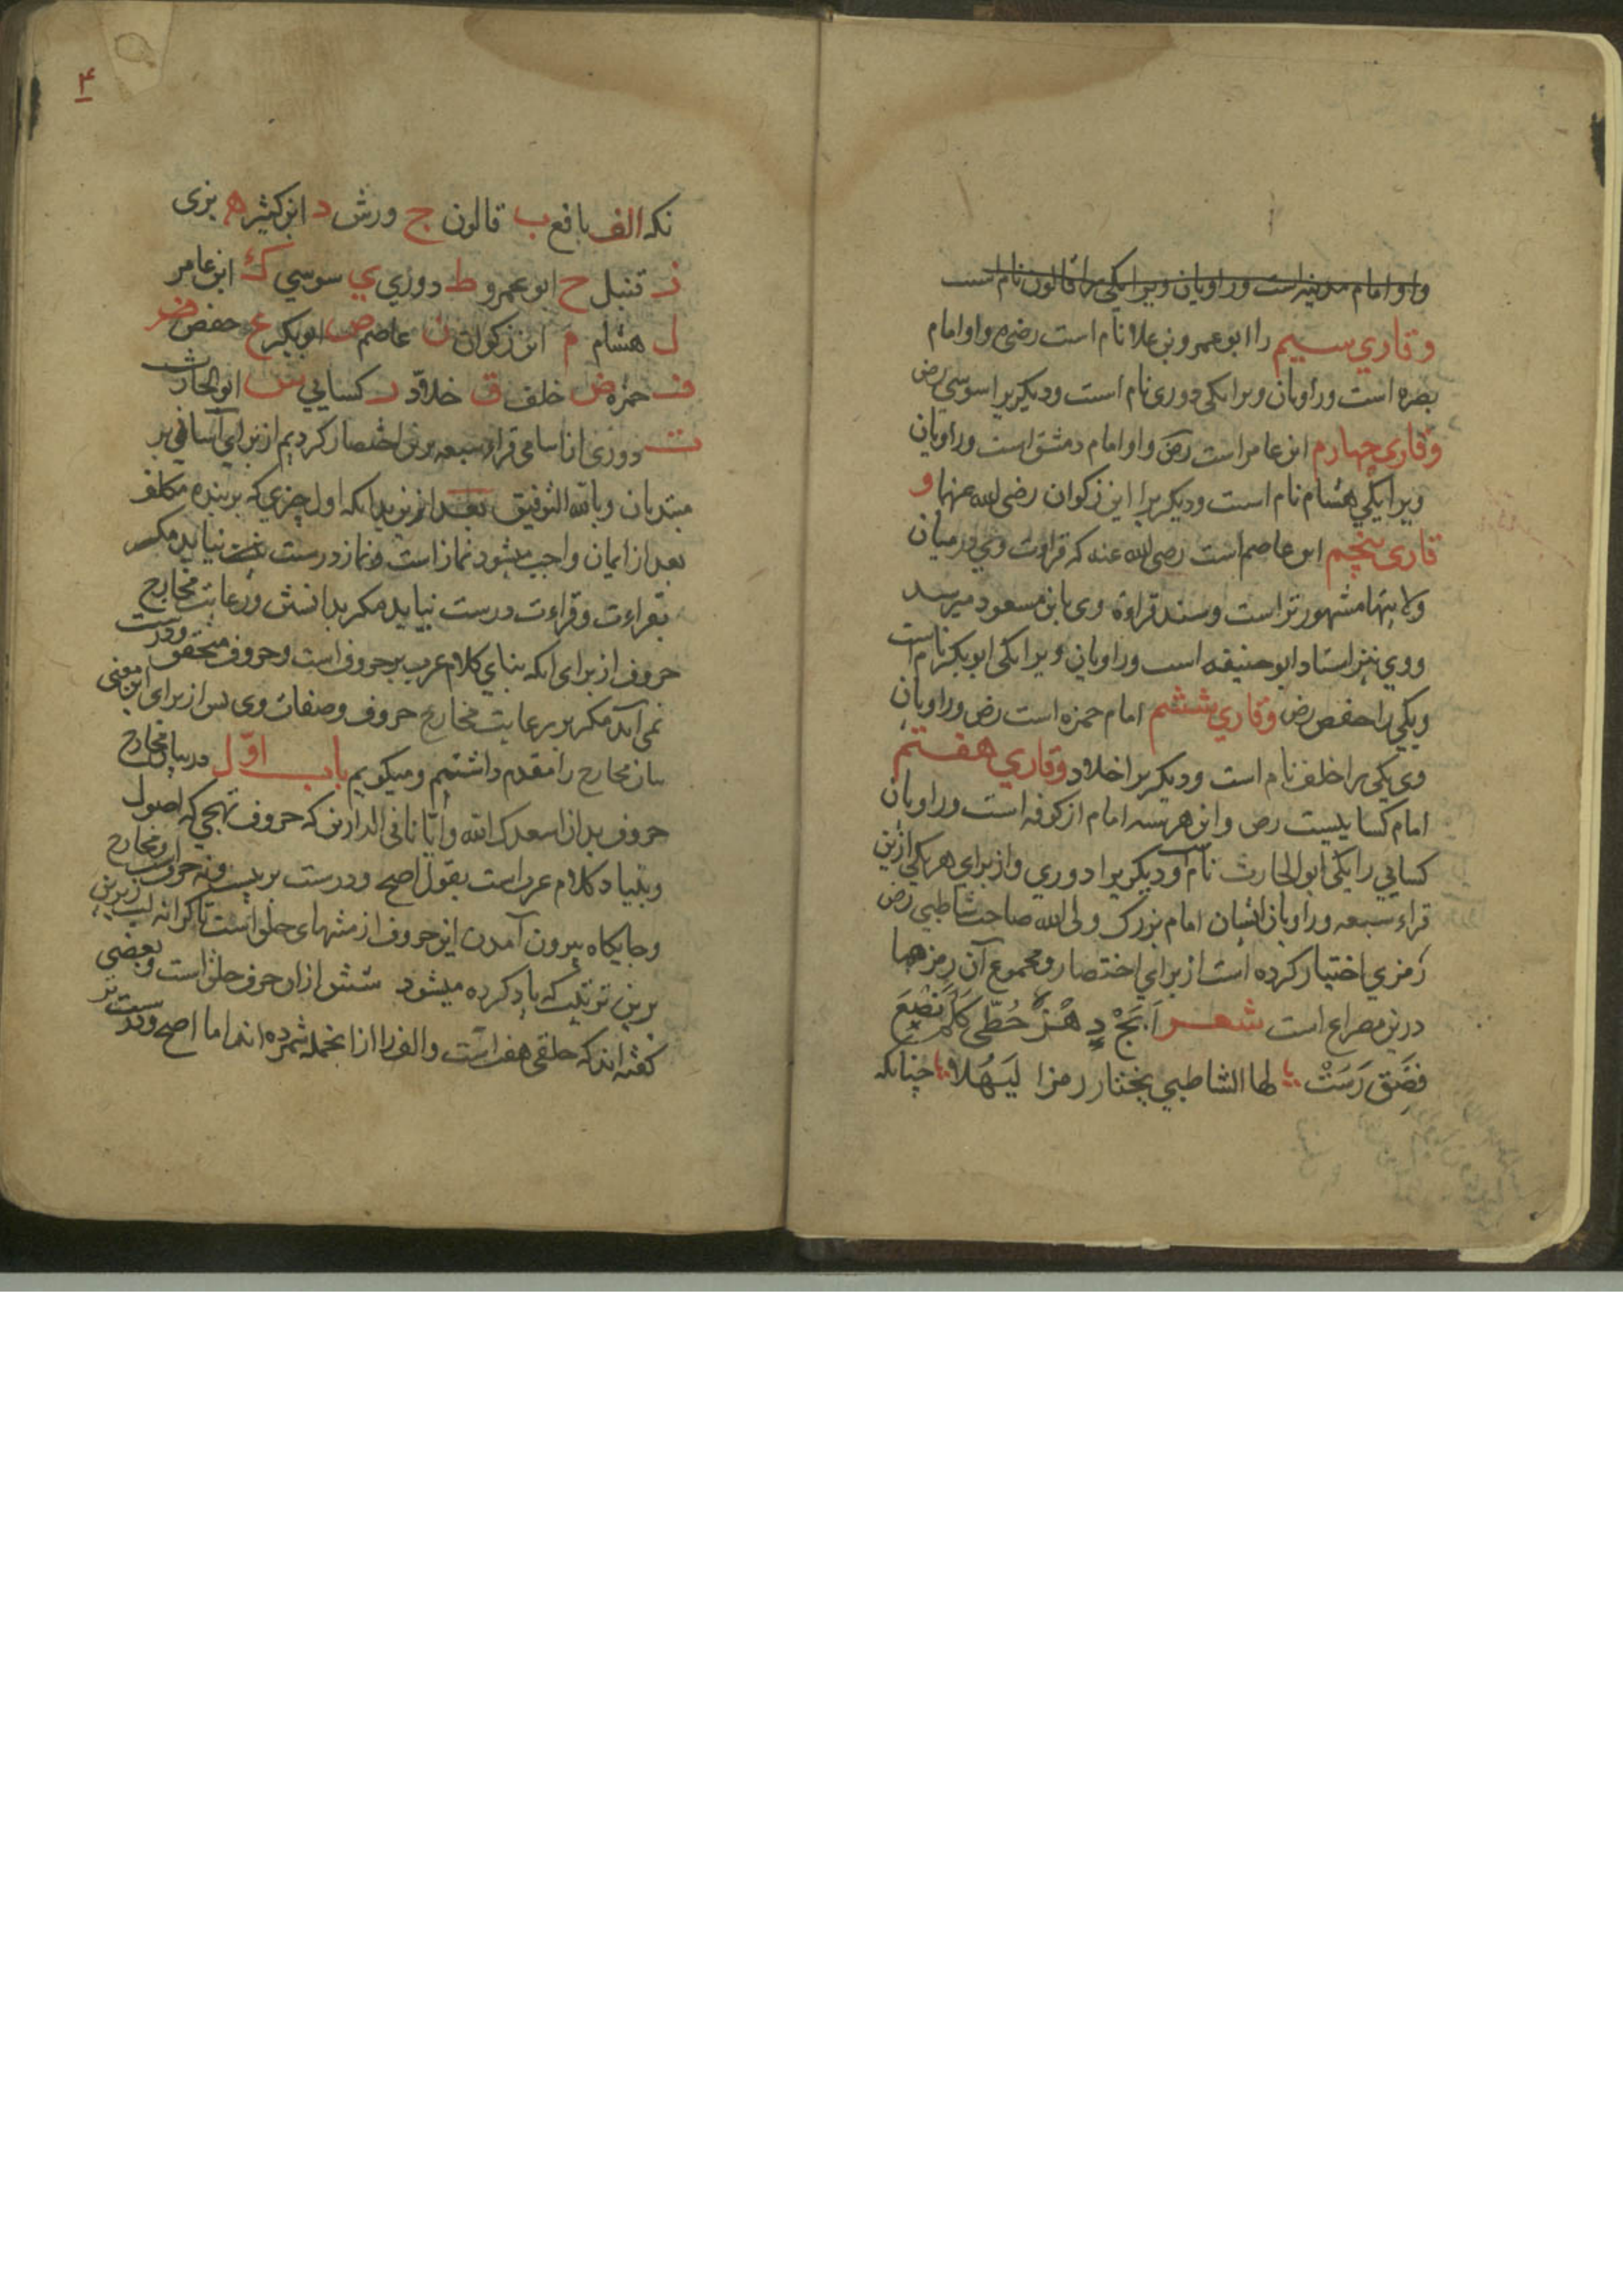 واو امام مدینه است وراویان ویرا یکی را قالون نام است
وقاري سیم را ابو عمرو بن علا نام است رضی واو امام
بصره است وراویان ویرا یکی دوری نام است ودیکریرا سوسی رض
وقاري چهارم ابن عامر است رض واو امام دمشق است وراویان
ویرا یکی هشام نام است ودیکریرا ابن زکوان رضی الله عنهما و
قاري پنجم ابو عاصم است رضی الله عنه که قراوت وی در میان
ولایتها مشهورتر است وسند قراوة وی بابن مسعود میرسد
ووی نیز استاد ابو حنیفه است وراویان ویرا یکی ابو بکر نام است
ویکی را حفص رض وقاري ششم امام حمزه است رض وراویان
وی یکی را خلف نام است ودیکریرا خلاد وقاري هفتم
امام کساییست رض واین هر سه امام از کوفه است وراویان
کسایي را یکی ابو الحارث نام است ودیکریرا دوري واز برای هر یکی ازین
قراء سبعه وراویان ایشان امام بزرک ولی الله صاحب شاطبي رض
رمزي اختیار کرده است از برای اختصار ومجموع آن رمزها
درین مصراع است شعر اَبَجْ دِهَزْ حُطِّی کَلَمْ نَصَعْ
فَضَقْ رَسَتْ لها الشاطبي یختار رمزا لیَهُلا چنانکه
۴
نکه الف نافع ب قالون ج ورش د ابن کثیر ه بزی
ز قنبل ح ابو عمرو ط دوري ي سوسي ک ابن عامر
ل هشام م ابن زکوان ن عاصم ص ابو بکر ع حفص
ف حمزه ض خلف ق خلاّد ر کسایي س ابو الحارث
ت دوری اما اسامی قراء سبعه برین اختصار کردیم از برای آسانی بر
مبتدیان وبالله التوفیق بعد ازین بدانکه اول چیزي که بر بنده مکلف
بعد از ایمان واجب میشود نماز است ونماز درست نیاید مکر
بقراءت وقراءت درست نیاید مکر بدانستن ورعایت مخارج
حروف از برای انکه بنای کلام عرب بر حروف است وحروف محقق ودرست
نمی آید مکر بر رعایت مخارج حروف وصفات وی پس از برای این معنی
بیان مخارج را مقدم داشتیم ومیکوییم باب اوّل در بیان مخارج
حروف بدان اسعدک الله وایّانا فی الدارین که حروف تهجي که اصول
وبنیاد کلام عرب است بقول اصح ودرست بر بیست ونه حرف است ومخارج
وجایکاه بیرون آمدن این حروف از منتهای حلق است تا کرانه لب زیرین
برین ترتیب که یاد کرده میشود شش از ان حرف حلق است وبعضی
کفته اند که حلقی هفت است والف را از انجمله شمرده اند اما اصح ودرست تر